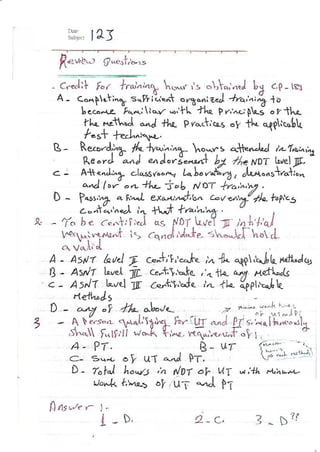 Date:
Subject: 123
Review Questions
- Credit For training hour is obtained by CP-189
A - Completing Sufficient organized training to
become Familiar with the Principles of the
the Method and the Practices of the applicable
test technique.
B - Recording the training hours attended in Training
Reord and endorsement by the NDT level III.
C - Attending classroom, Laboratory, demonstration
and/or on the job NDT training.
D - Passing a final examination covering the topics
contained in that training.
2 - To be Certified as NDT level III intitial
requirement is candidate should hold
a valid
A - ASNT level II Centificate in the applicable methodes
B - ASNT level III Certificate in the any Methods
C - ASNT level III Certificate in the applicable
Methods
D - any of the above
minimum work times
of UT and PT
3 - A Person qualifying for UT and PT simultaneously
shall fulfill work time requirement of:
A - PT. B - UT
C - Sum of UT and PT.
D - Total hours in NDT of UT with Minimum
work times of UT and PT
Answer :-
1 - D. 2 - C. 3 - D ??